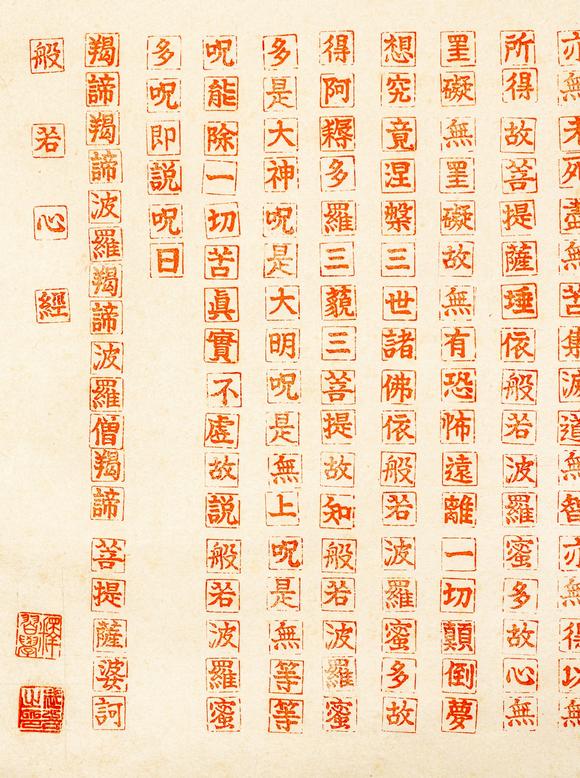 亦無老死盡無苦集滅道無智亦無得以無
所得故菩提薩埵依般若波羅蜜多故心無
罣礙無罣礙故無有恐怖遠離一切顛倒夢
想究竟涅槃三世諸佛依般若波羅蜜多故
得阿耨多羅三藐三菩提故知般若波羅蜜
多是大神呪是大明呪是無上呪是無等等
呪能除一切苦眞實不虛故説般若波羅蜜
多呪即説呪曰
羯諦羯諦波羅羯諦波羅僧羯諦 菩提薩婆訶
般若心經